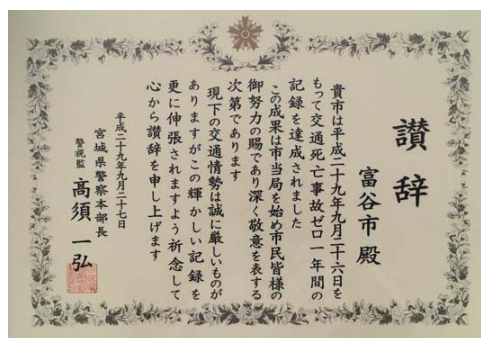 讃辞
富谷市殿
貴市は平成二十九年九月二十六日を
もって交通死亡事故ゼロ一年間の
記録を達成されました
この成果は市当局を始め市民皆様の
御努力の賜であり深く敬意を表する
次第であります
現下の交通情勢は誠に厳しいものが
ありますがこの輝かしい記録を
更に伸張されますよう祈念して
心から讃辞を申し上げます
平成二十九年九月二十七日
宮城県警察本部長
警視監 高須一弘